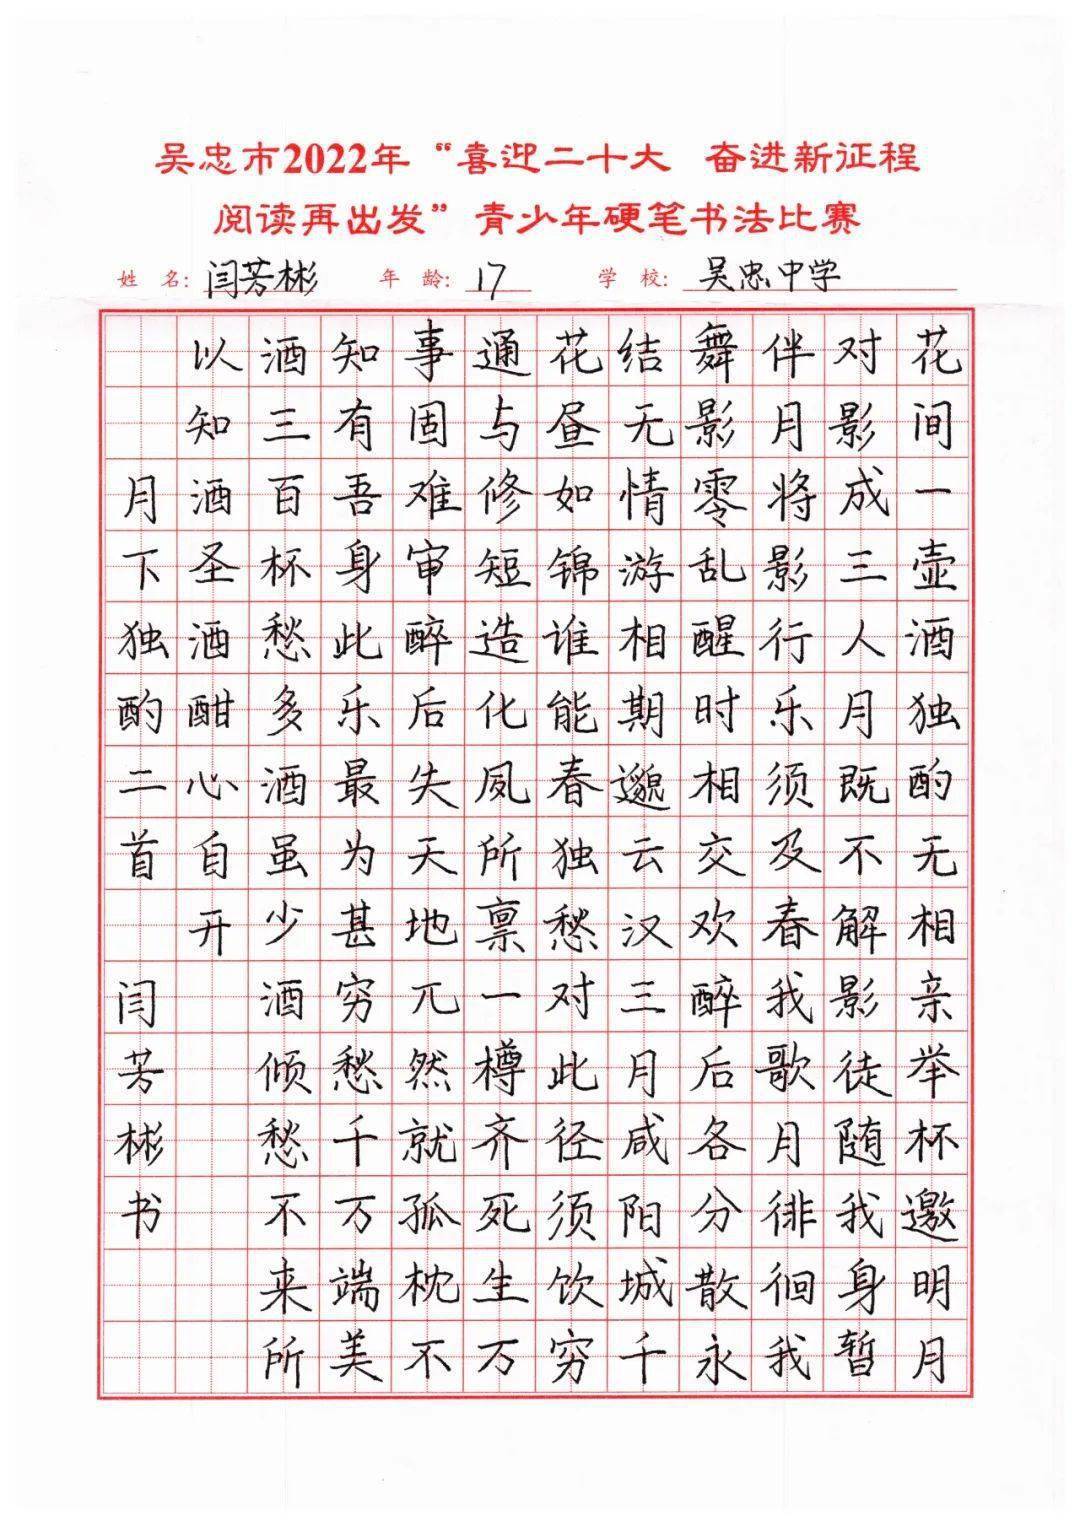 吴忠市2022年“喜迎二十大 奋进新征程
阅读再出发”青少年硬笔书法比赛
姓 名: 闫芳彬 年 龄: 17 学 校: 吴忠中学
花间一壶酒独酌无相亲举杯邀明月
对影成三人月既不解影徒随我身暂
伴月将影行乐须及春我歌月徘徊我
舞影零乱醒时相交欢醉后各分散永
结无情游相期邈云汉三月咸阳城千
花昼如锦谁能春独愁对此径须饮穷
通与修短造化夙所禀一樽齐死生万
事固难审醉后失天地兀然就孤枕不
知有吾身此乐最为甚穷愁千万端美
酒三百杯愁多酒虽少酒倾愁不来所
以知酒圣酒酣心自开
月下独酌二首 闫芳彬书